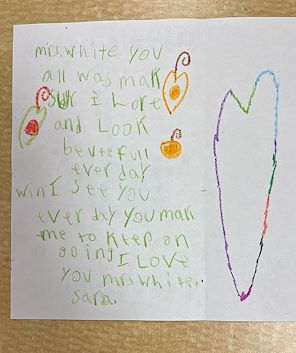 mrs. white you
all was mak
sur i Lore
and Look
bevtefull
ever day
win I see you
ever day you mak
me to keep on
going I Love
you mrs white.
Sara